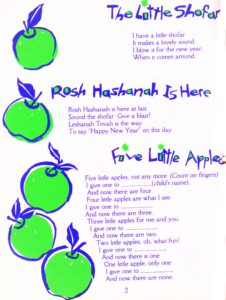 The Little Shofar
I have a little shofar
It makes a lovely sound
I blow it for the new year,
When it comes around.
Rosh Hashanah Is Here
Rosh Hashanah is here at last.
Sound the shofar Give a blast!
Leshanah Tovah is the way
To say "Happy New Year" on this day
Five Little Apples
Five little apples, not any more (Count on fingers)
I give one to .................. (child's name).
And now there are four
Four little apples are what I see
I give one to ..................
And now there are three.
Three little apples for me and you.
I give one to ..................
And now there are two.
Two little apples, oh, what fun!
I give one to ..................
And now there is one
One little apple, only one
I give one to ..................
And now there are none.
2